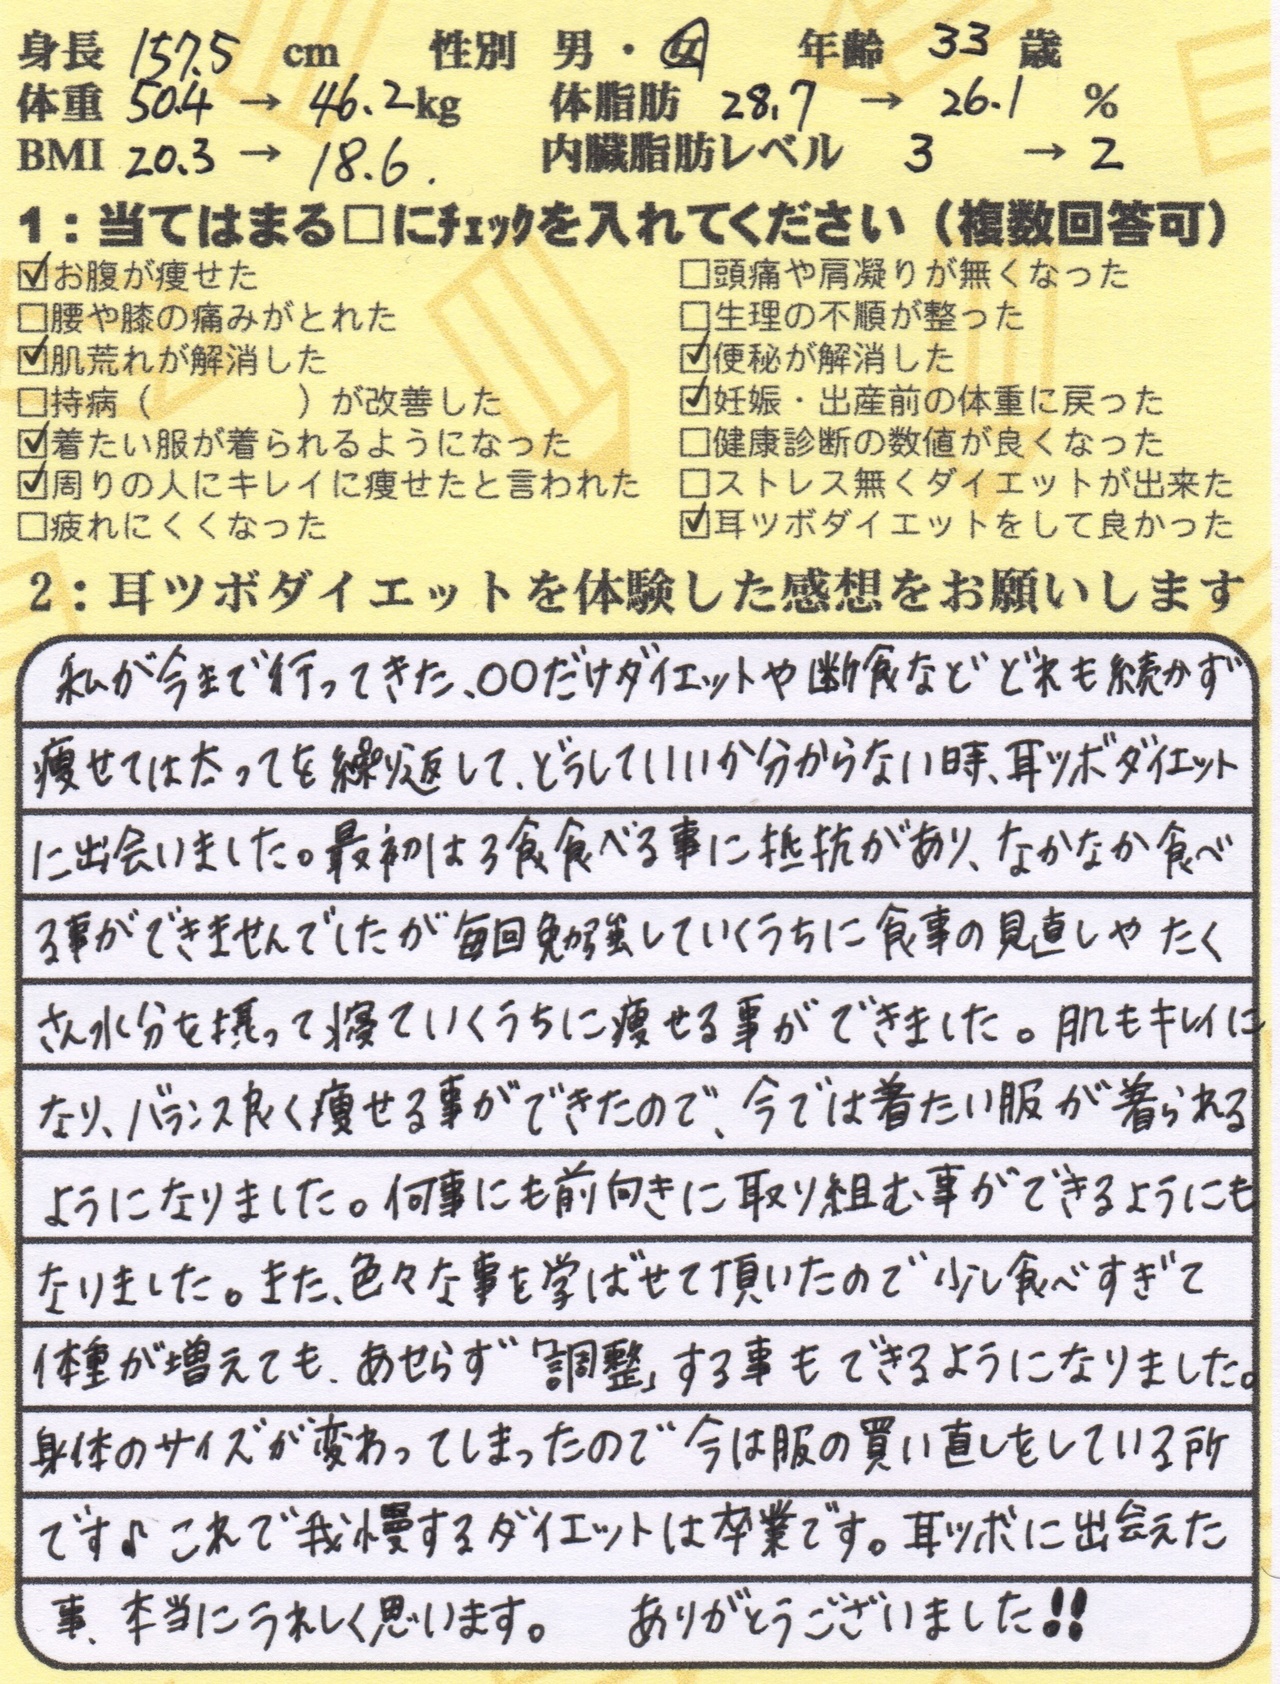 身長 157.5 cm 性別 男・女 年齢 33 歳
体重 50.4 → 46.2kg 体脂肪 28.7 → 26.1 %
BMI 20.3 → 18.6. 内臓脂肪レベル 3 → 2
1：当てはまる□にﾁｪｯｸを入れてください（複数回答可）
☑お腹が痩せた □頭痛や肩凝りが無くなった
□腰や膝の痛みがとれた □生理の不順が整った
☑肌荒れが解消した ☑便秘が解消した
□持病（　　　　）が改善した ☑妊娠・出産前の体重に戻った
☑着たい服が着られるようになった □健康診断の数値が良くなった
☑周りの人にキレイに痩せたと言われた □ストレス無くダイエットが出来た
□疲れにくくなった ☑耳ツボダイエットをして良かった
2：耳ツボダイエットを体験した感想をお願いします
私が今まで行ってきた、○○だけダイエットや断食などどれも続かず
痩せては太ってを繰り返して、どうしていいか分からない時、耳ツボダイエット
に出会いました。最初は3食食べる事に抵抗があり、なかなか食べ
る事ができませんでしたが毎回勉強していくうちに食事の見直しやたく
さん水分を摂って寝ていくうちに痩せる事ができました。肌もキレイに
なり、バランス良く痩せる事ができたので、今では着たい服が着られる
ようになりました。何事にも前向きに取り組む事ができるようにも
なりました。また、色々な事を学ばせて頂いたので少し食べすぎて
体重が増えても、あせらず「調整」する事もできるようになりました。
身体のサイズが変わってしまったので今は服の買い直しをしている所
です♪これで我慢するダイエットは卒業です。耳ツボに出会えた
事、本当にうれしく思います。　ありがとうございました!!